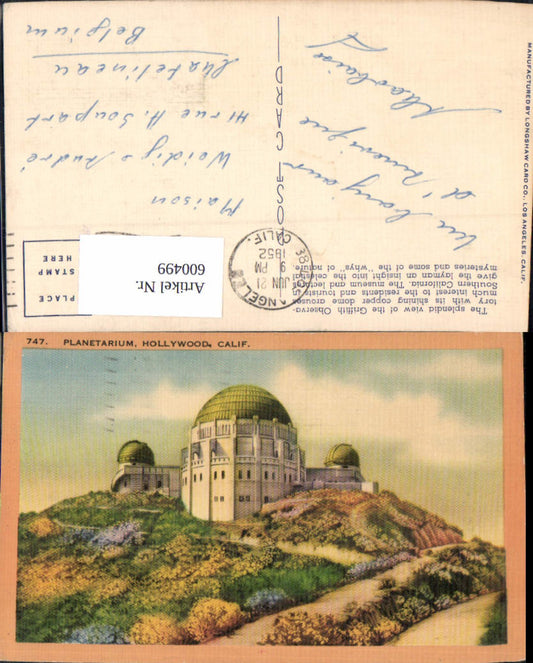 MANUFACTURED BY LONGSHAW CARD CO., LOS ANGELES, CALIF.
POST CARD
PLACE
STAMP
HERE
ANGELES
CALIF.
JUN 21
9 PM
1952
Un bonjour
d'Amérique
Maison
André
41 rue H. Soupart
Chatelineau
Belgium
The splendid view of the Griffith Observa-
tory with its shining copper dome arouses
much interest to the residents and tourists in
Southern California. The museum and lectures
give the layman an insight into the celestial
mysteries and some of the "whys" of nature.
Artikel Nr.
600499
747. PLANETARIUM, HOLLYWOOD, CALIF.